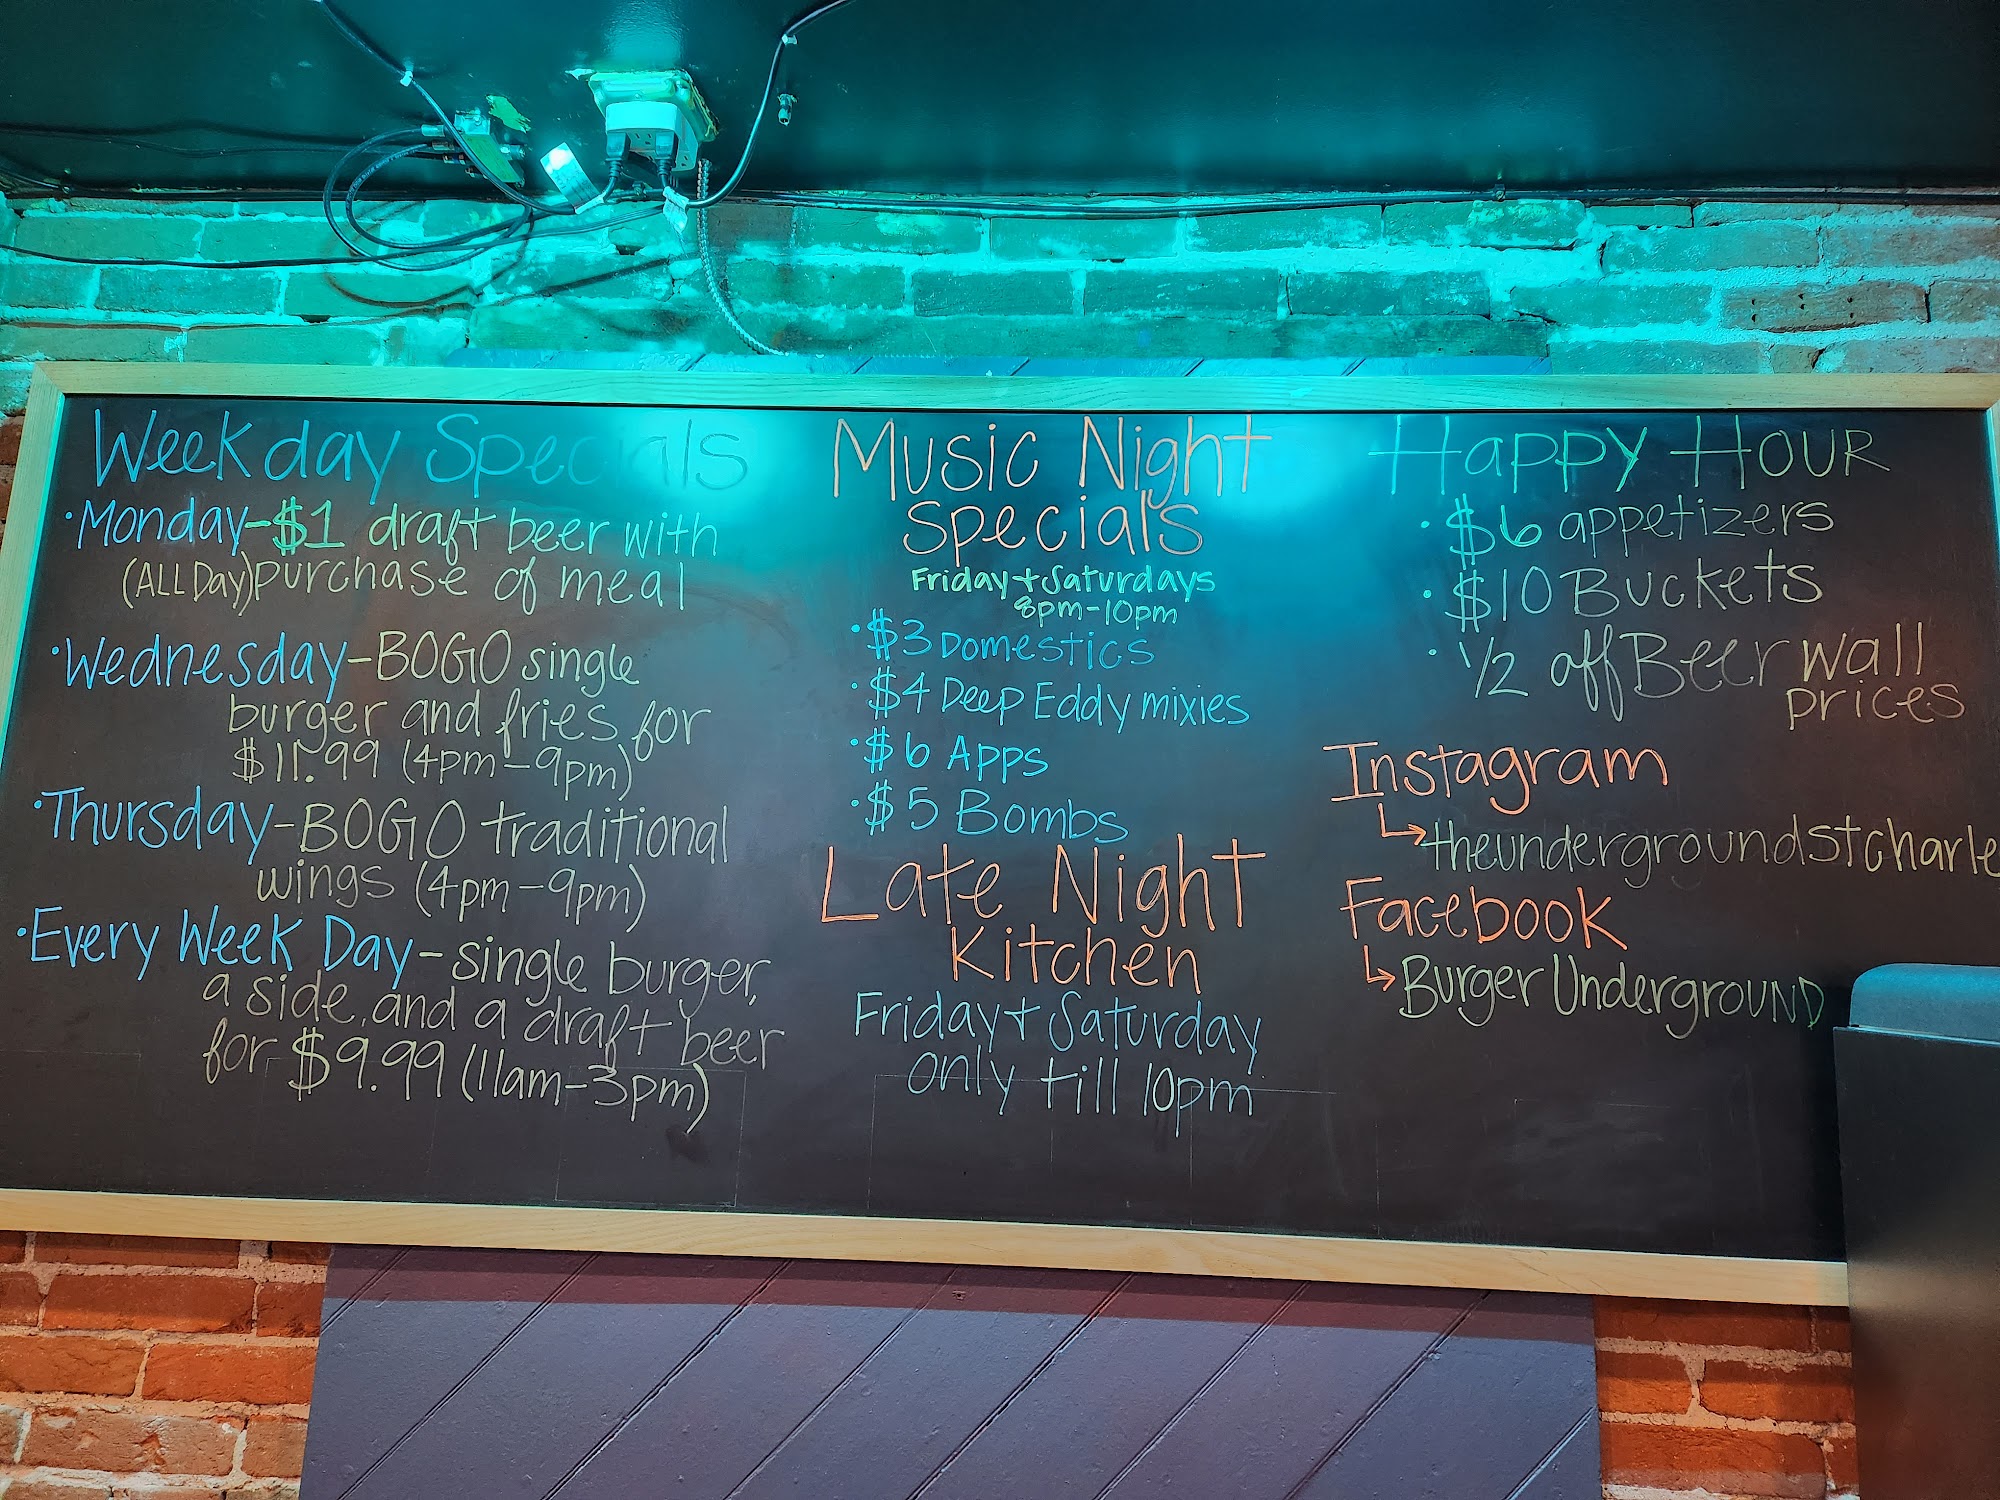 Weekday Specials
• Monday - $1 draft beer with
(ALL Day) purchase of meal
• Wednesday - BOGO single
burger and fries for
$11.99 (4pm - 9pm)
• Thursday - BOGO traditional
wings (4pm - 9pm)
• Every Week Day - single burger,
a side, and a draft beer
for $9.99 (11am - 3pm)
Music Night
Specials
Friday + Saturdays
8pm - 10pm
• $3 Domestics
• $4 Deep Eddy mixies
• $6 Apps
• $5 Bombs
Late Night
Kitchen
Friday + Saturday
only till 10pm
Happy Hour
• $6 appetizers
• $10 Buckets
• 1/2 off Beer wall
prices
Instagram
↳ theundergroundstcharle
Facebook
↳ Burger Underground